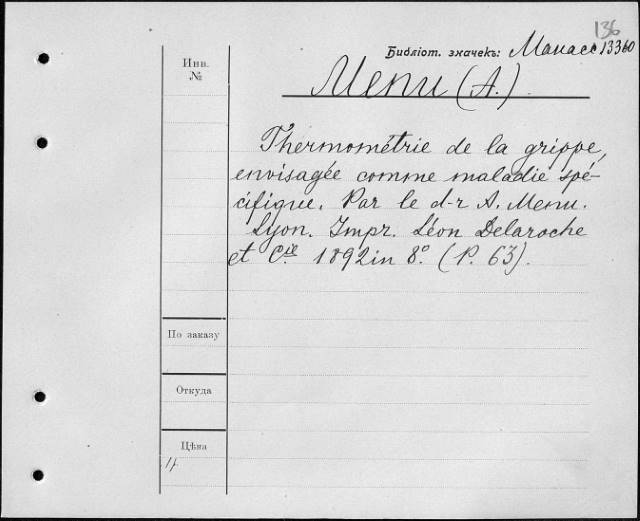 136
Библіот. значекъ: Манасс 13360
Инв.
№
Menu (A.)
Thermométrie de la grippe,
envisagée comme maladie spé-
cifique. Par le d-r A. Menu.
Lyon. Impr. Léon Delaroche
et Cie. 1892 in 8°. (P. 63).
По заказу
Откуда
Цѣна